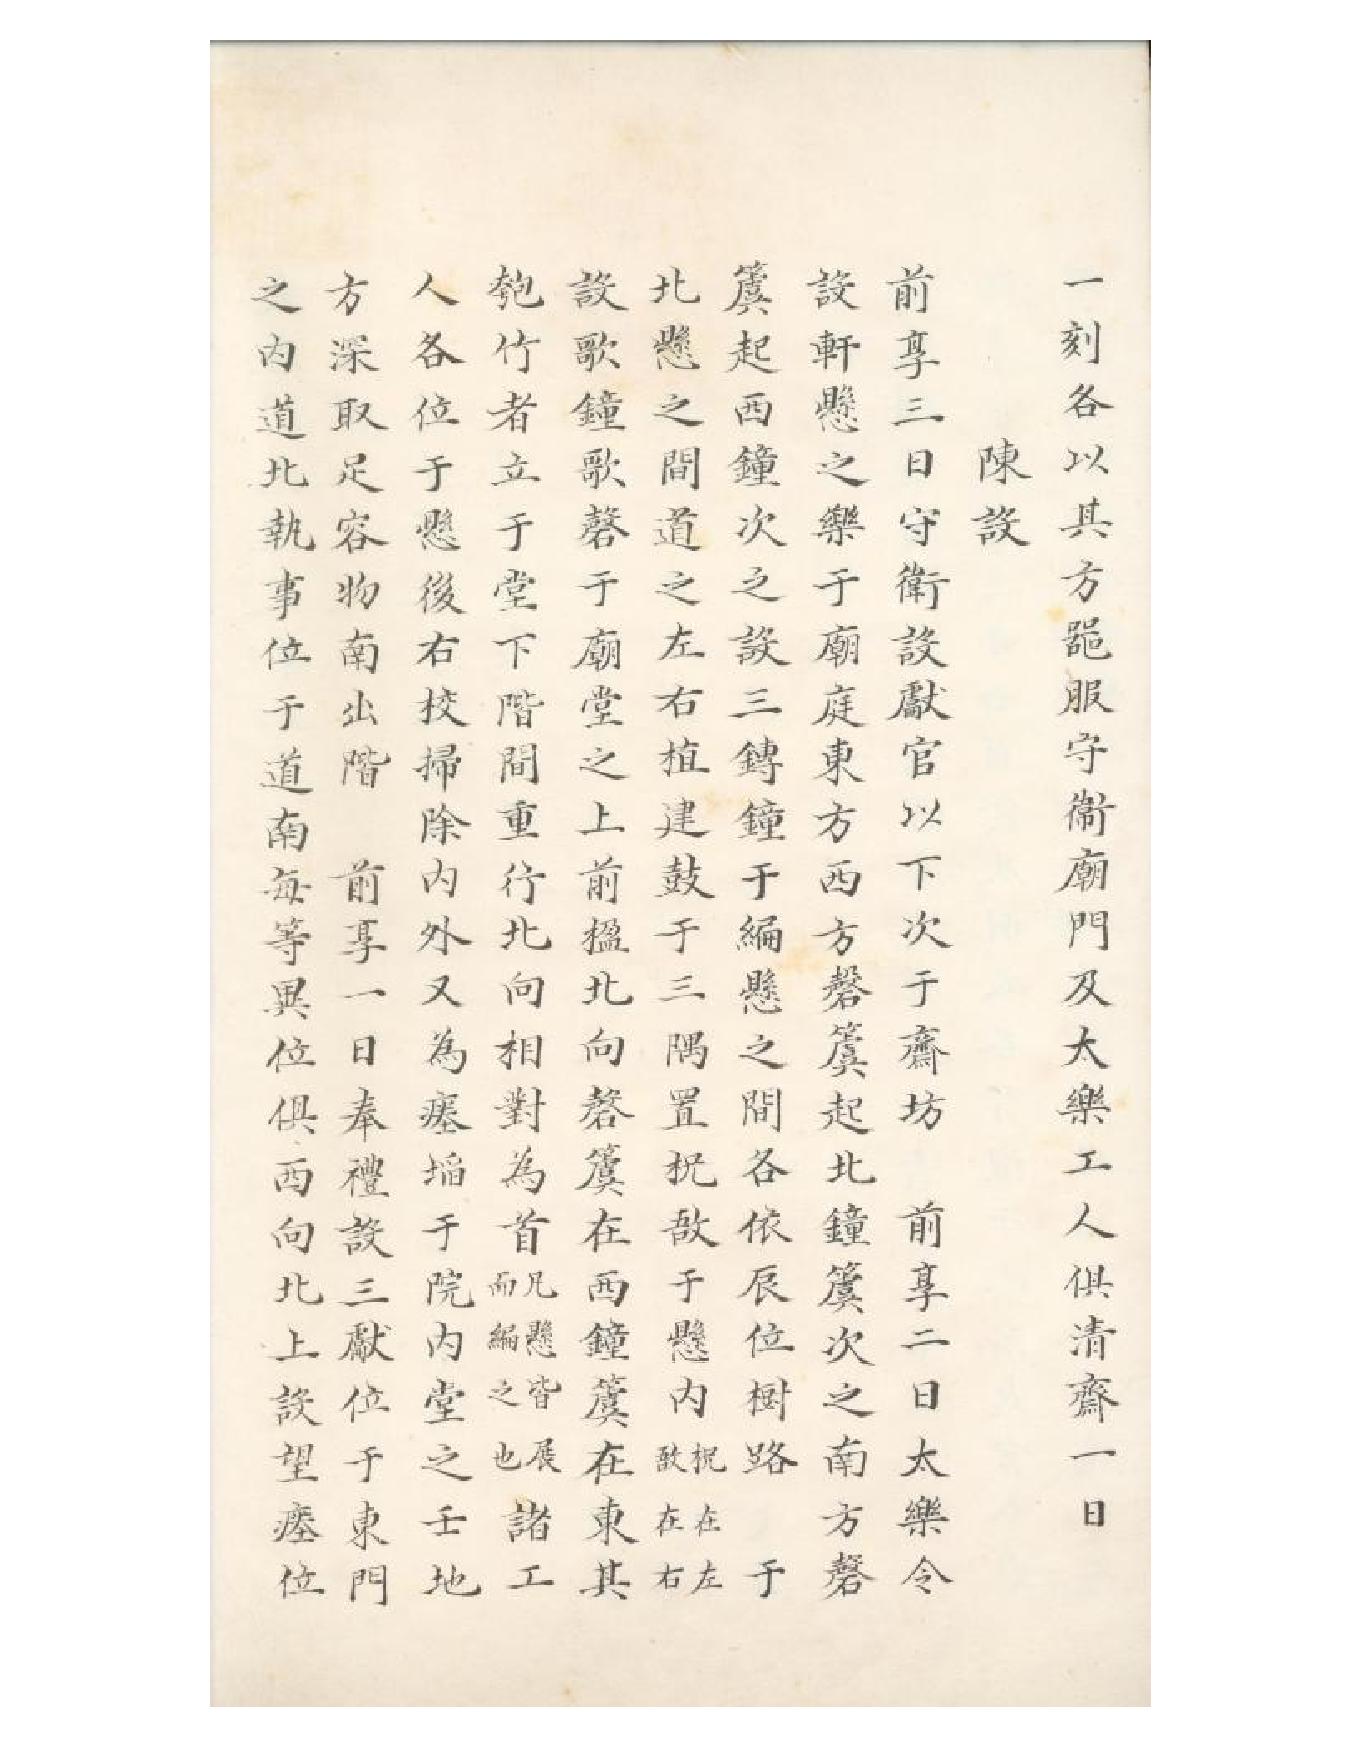 一刻各以其方噐服守衞廟門及大樂工人俱清齋一日
陳設
前享三日守衛設獻官以下次于齋坊　前享二日太樂令
設軒懸之樂于廟庭東方西方磬簴起北鐘簴次之南方磬
簴起西鐘次之設三鎛鐘于編懸之間各依辰位樹路　于
北懸之間道之左右植建鼓于三隅置柷敔于懸内柷在左敔在右
設歌鐘歌磬于廟堂之上前楹北向磬簴在西鐘簴在東其
匏竹者立于堂下階間重行北向相對為首凡懸皆展而編之也諸工
人各位于懸後右校掃除内外又為瘞埳于院内堂之壬地
方深取足容物南出階　前享一日奉禮設三獻位于東門
之内道北執事位于道南每等異位俱西向北上設望瘞位